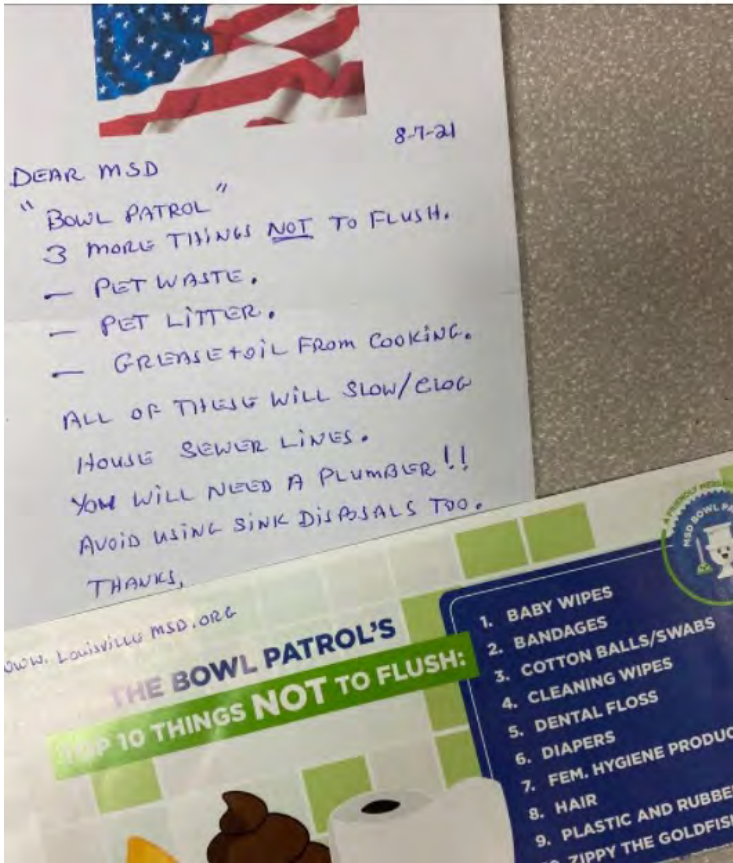 8-7-21
DEAR MSD
"BOWL PATROL"
3 MORE THINGS NOT TO FLUSH.
— PET WASTE.
— PET LITTER.
— GREASE + OIL FROM COOKING.
ALL OF THESE WILL SLOW/CLOG
HOUSE SEWER LINES.
YOU WILL NEED A PLUMBER!!
AVOID USING SINK DISPOSALS TOO.
THANKS,
www. LOUISVILLE MSD.ORG
THE BOWL PATROL'S
TOP 10 THINGS NOT TO FLUSH:
1. BABY WIPES
2. BANDAGES
3. COTTON BALLS/SWABS
4. CLEANING WIPES
5. DENTAL FLOSS
6. DIAPERS
7. FEM. HYGIENE PRODUC
8. HAIR
9. PLASTIC AND RUBBE
ZIPPY THE GOLDFIS
A FRIENDLY
MSD BOWL PA